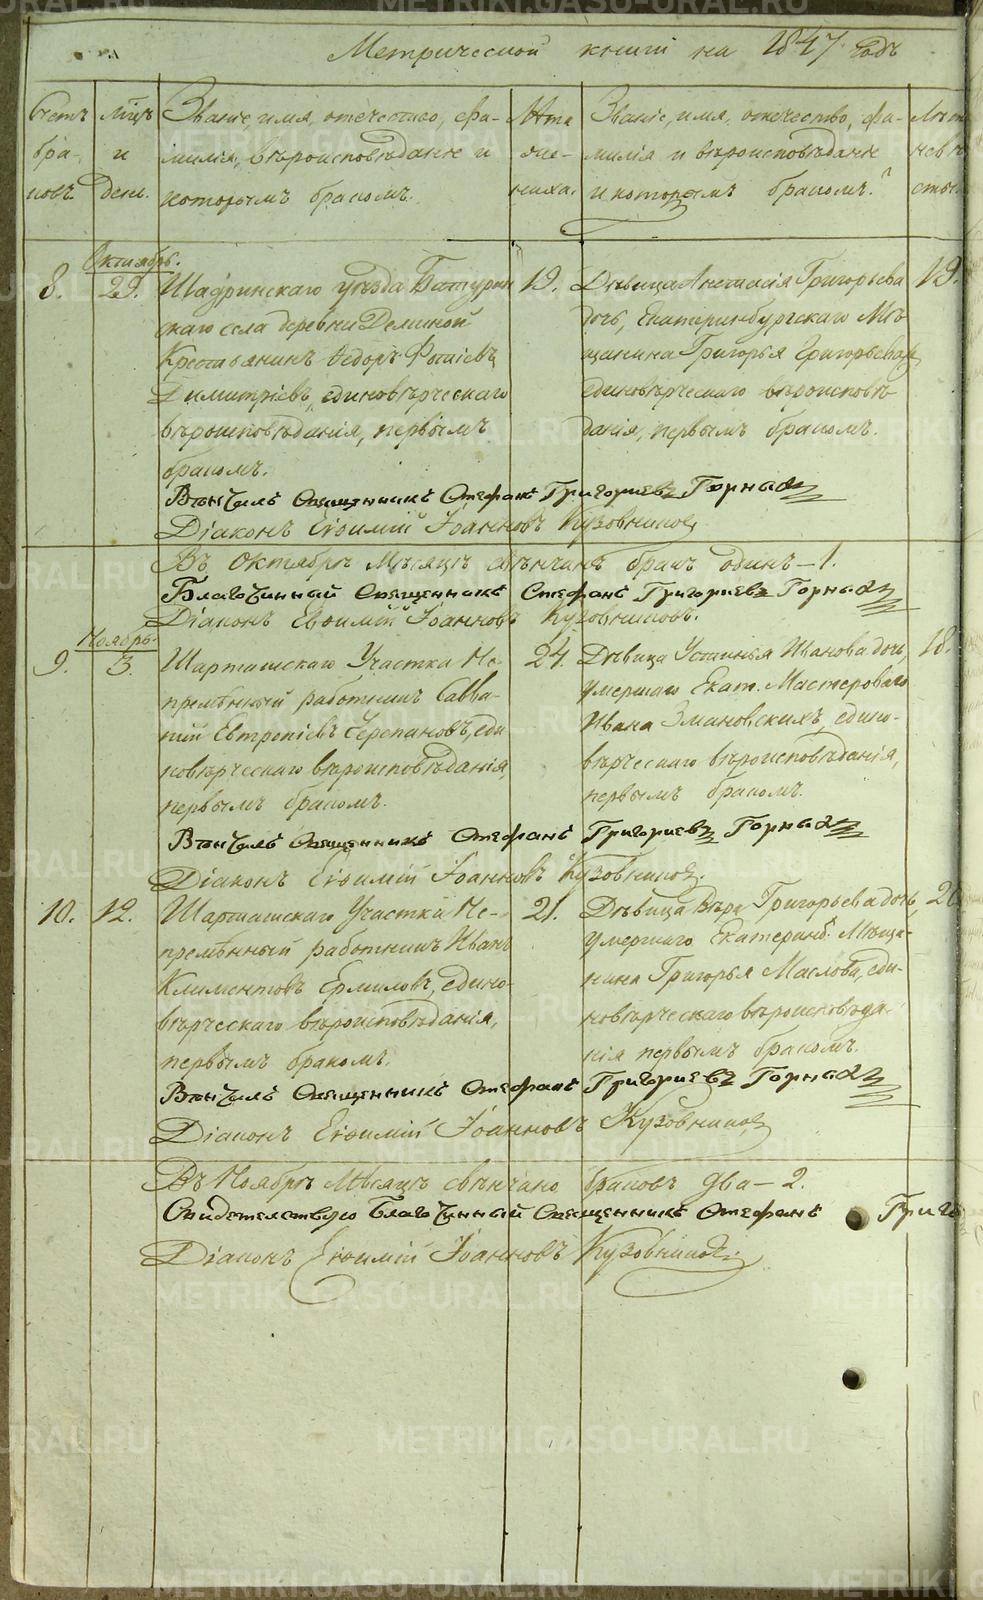 Метрической книги на 1847 годъ
Счетъ браковъ.
Мцъ и день.
Званіе, имя, отечество, фамилія, вѣроисповѣданіе и которымъ бракомъ.
Лѣта жениха.
Званіе, имя, отечество, фамилія и вѣроисповѣданіе и которымъ бракомъ.
Лѣта невѣсты.
Октябрь.
8. 29.
Шадринскаго уѣзда Батурин
скаго села деревни Деминой
Крестьянинъ Ѳедоръ
Димитріевъ, единовѣрческаго
вѣроисповѣданія, первымъ
бракомъ.
19.
Дѣвица Анастасія Григорьева
дочь, Екатеринбургскаго Мѣ
щанина Григорья Григорьева,
единовѣрческаго вѣроисповѣ
данія, первымъ бракомъ.
19.
Вѣнчалъ Священникъ Стефанъ Григориевъ Горных
Діаконъ Евѳимій Іоанновъ Кузовниковъ
Въ Октябрѣ Мѣсяцѣ вѣнчанъ бракъ одинъ – 1.
Благочинный Священникъ Стефанъ Григориевъ Горных
Діаконъ Евѳимій Іоанновъ Кузовниковъ.
Ноябрь.
9. 3.
Шарташскаго Участка Не-
премѣнный работникъ Савва-
тій Евтропіевъ Черепановъ, еди
новѣрческаго вѣроисповѣданія,
первымъ бракомъ.
24.
Дѣвица Устинья Иванова дочь,
умершаго Екат. Мастероваго
Ивана Змановскихъ, едино-
вѣрческаго вѣроисповѣданія,
первымъ бракомъ.
18.
Вѣнчалъ Священникъ Стефанъ Григориевъ Горных
Діаконъ Евѳимій Іоанновъ Кузовниковъ.
10. 12.
Шарташскаго Участка Не-
премѣнный работникъ Иванъ
Климентовъ Ермиловъ, едино-
вѣрческаго вѣроисповѣданія,
первымъ бракомъ.
21.
Дѣвица Вѣра Григорьева дочь,
умершаго Екатеринб. Мѣща-
нина Григорья Маслова, еди-
новѣрческаго вѣроисповѣда-
нія первымъ бракомъ.
20
Вѣнчалъ Священникъ Стефанъ Григориевъ Горных
Діаконъ Евѳимій Іоанновъ Кузовниковъ
Въ Ноябрѣ Мѣсяцѣ вѣнчано браковъ два – 2.
Свидетельствую Благочинный Священникъ Стефанъ Григо
Діаконъ Евѳимій Іоанновъ Кузовниковъ.
METRIKI.GASO-URAL.RU